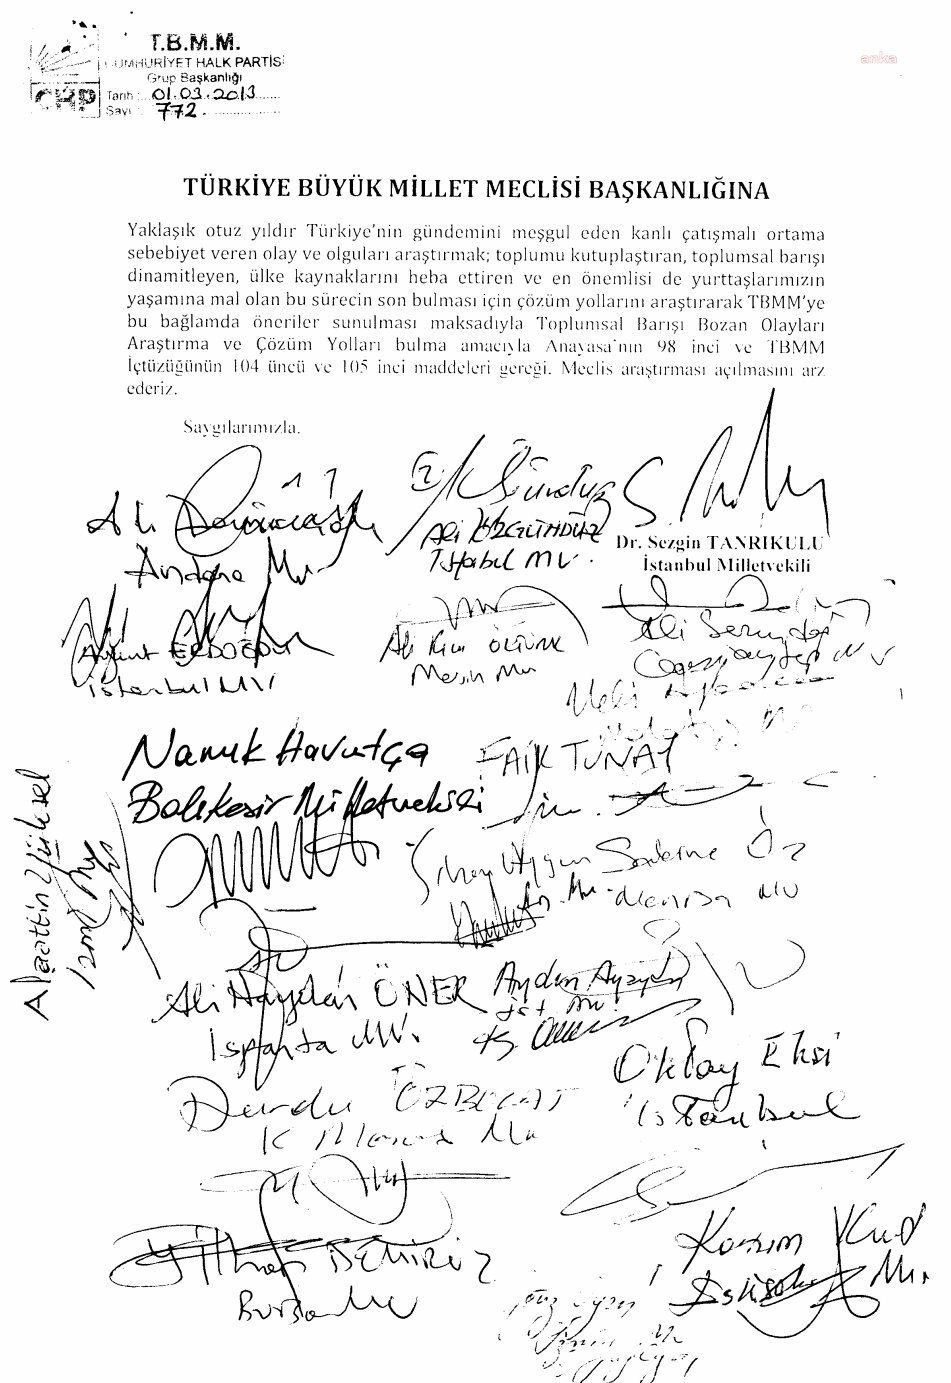 T.B.M.M.
CUMHURİYET HALK PARTİSİ
Grup Başkanlığı
CHP
Tarih : 01.03.2013
Sayı : 772.
anka
TÜRKİYE BÜYÜK MİLLET MECLİSİ BAŞKANLIĞINA
Yaklaşık otuz yıldır Türkiye'nin gündemini meşgul eden kanlı çatışmalı ortama
sebebiyet veren olay ve olguları araştırmak; toplumu kutuplaştıran, toplumsal barışı
dinamitleyen, ülke kaynaklarını heba ettiren ve en önemlisi de yurttaşlarımızın
yaşamına mal olan bu sürecin son bulması için çözüm yollarını araştırarak TBMM'ye
bu bağlamda öneriler sunulması maksadıyla Toplumsal Barışı Bozan Olayları
Araştırma ve Çözüm Yolları bulma amacıyla Anayasa'nın 98 inci ve TBMM
İçtüzüğünün 104 üncü ve 105 inci maddeleri gereği. Meclis araştırması açılmasını arz
ederiz.
Saygılarımızla.
Ali
Ali ÖZGÜNDÜZ
İstanbul MV.
Dr. Sezgin TANRIKULU
İstanbul Milletvekili
Aykut ERDOĞDU
İstanbul MV
Ali Rıza ÖZTÜRK
Mersin MV
Ali Serindağ
Gaziantep MV
Namık Havutça
Balıkesir Milletvekili
FAİK TUNAY
Alaattin Yüksel
İzmir MV
Sakine Öz
Manisa MV
Ali Haydar ÖNER
Isparta MV.
Aydın Ayaydın
İst MV.
Durdu ÖZBOLAT
K Maraş MV
Oktay Ekşi
İstanbul
İlhan DEMİRÖZ
Bursa MV
Kazım Kurt
Eskişehir MV.